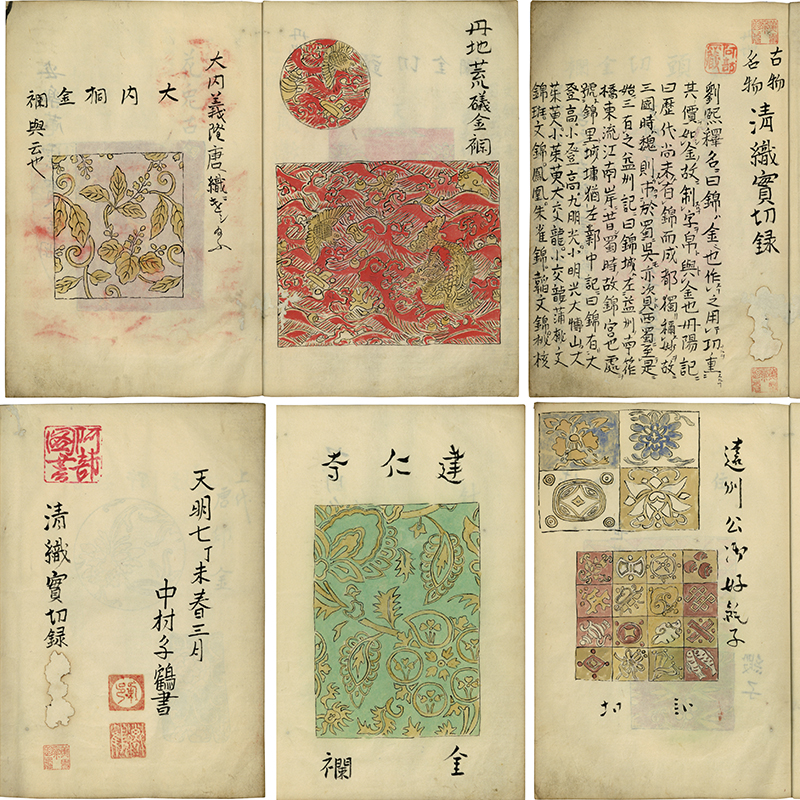 丹地荒礒金襴
大内義隆唐織
大内桐金
襴與云也
古物
名物
清織寳切録
劉熙釋名曰錦ハ金也作之用功重
其價如金故制字帛與金也丹陽記
曰歴代尚未有錦而成都獨稱妙故
三國時魏則市於蜀吳亦次西蜀至是
始三百之益州記曰錦城在益州南笮
橋東流江南岸昔蜀時故錦宮也處
號錦里城墉猶在鄴中記曰錦有大
登高小登高大明光小明光大博山大
茱萸小茱萸大交龍小交龍蒲桃文
錦班文錦鳳凰朱雀錦韜文錦桃核
天明七丁未春三月
中村子鶴書
清織寳切録
建仁寺
金襴
遠州公御好純子
三切